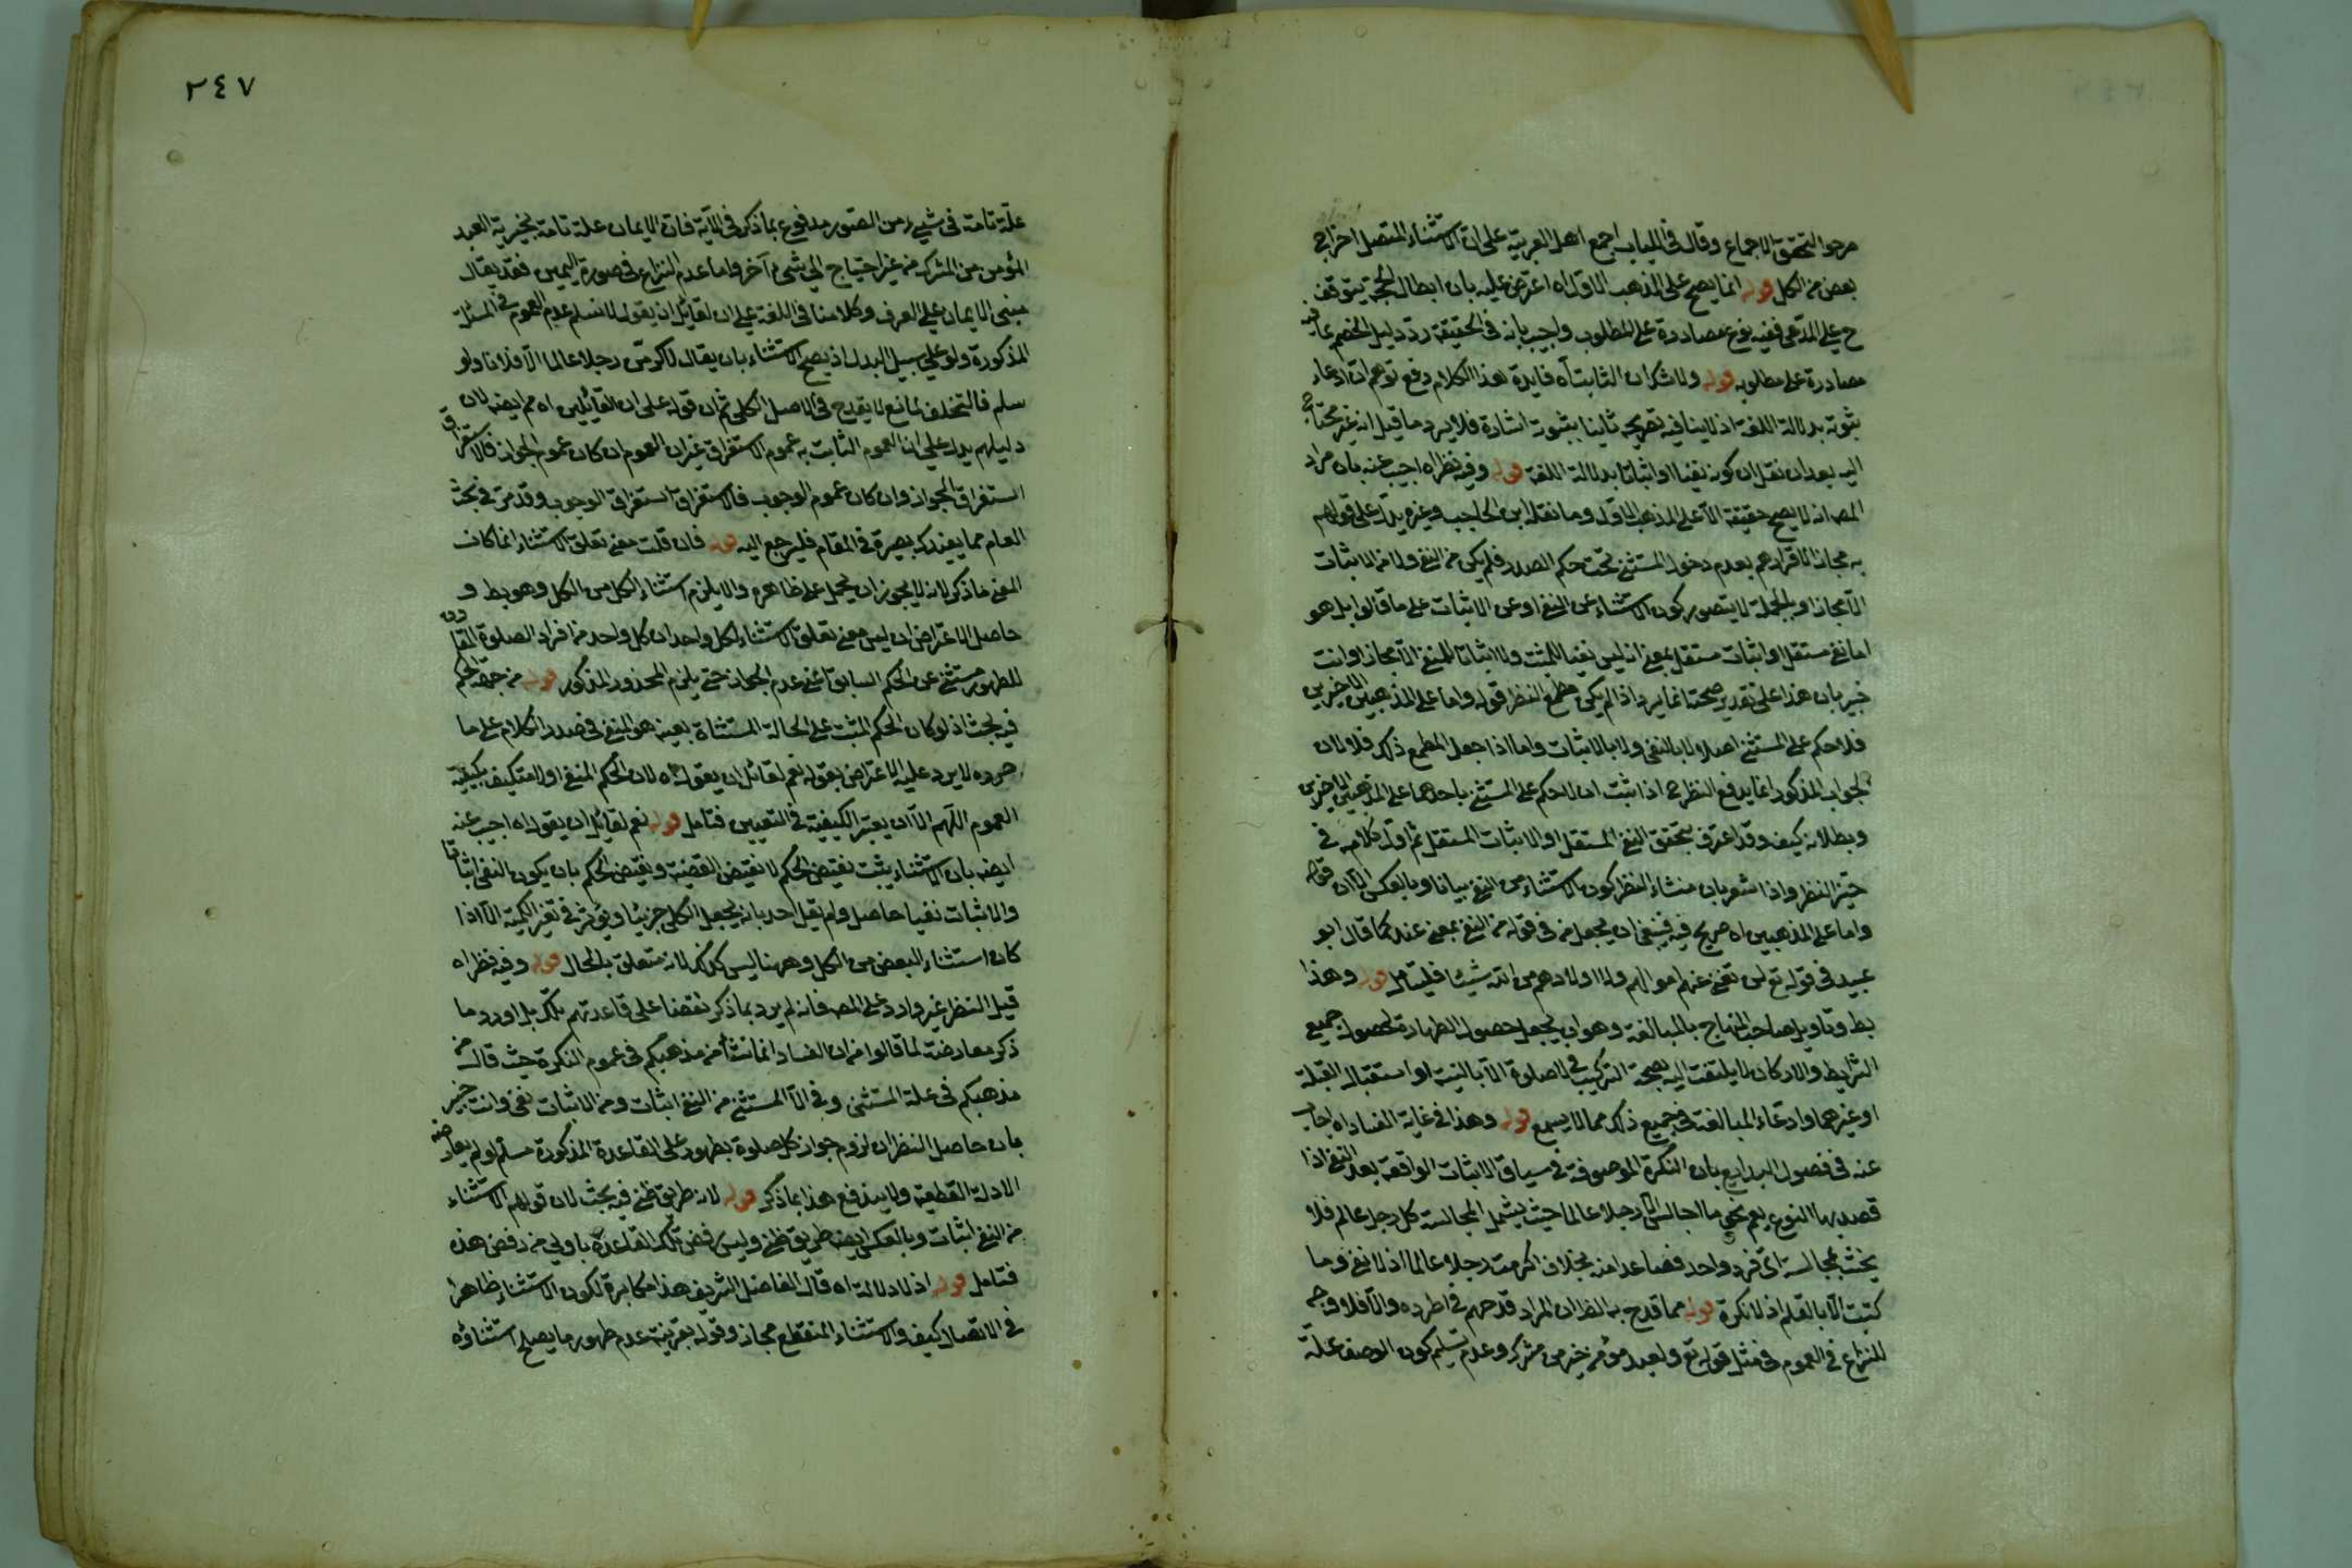 مرجوا لتحقق الاجماع وقال في اللباب اجمع اهل العربية على ان الاستثناء المتصل اخراج
بعض من الكل قوله انما يصح على المذهب الاول اه اعترض عليه بان ابطال الحجة يتوقف
ح على المدعى ففيه نوع مصادرة على المطلوب واجيب بانه في الحقيقة رد دليل الخصم
مصادرة على مطلوبه قوله ولا شك ان الثابت اه فايدة هذا الكلام دفع توهم ان ادعاء
ثبوته بدلالة اللغة اذ لا ينافيه تصريحه ثانيا بثبوته اشارة فلا يرد ما قيل انه غير محتاج
اليه بعد ان نقل ان كونه نفيا او اثباتا بدلالة اللغة قوله وفيه نظر اه اجيب عنه بان مراد
المص انه لا يصح حقيقة الا على المذهب الاول وما نقله ابن الحاجب وغيره يدل على قولهم
به مجازا لاقرارهم بعدم دخول المستثنى تحت حكم الصدر فلم يكن من النفي ولا من الاثبات
الا مجازا وبالجملة لا يتصور كون الاستثناء عن النفي او عن الاثبات على ما قالوا بل هو
اما نفي مستقل او اثبات مستقل بمعنى انه ليس نفيا للمثبت ولا اثباتا للمنفي الا مجازا وانت
خبير بان هذا على تقدير صحته انما يرد اذا لم يكن مطمح النظر قوله واما على المذهبين الاخيرين
فلا حكم على المستثنى اصلا لا بالنفي ولا بالاثبات واما اذا جعل المطمح ذلك فلا لان
الجواب المذكور انما يدفع النظر ح اذا ثبت ان لا حكم على المستثنى باحدهما على المذهبين الاخيرين
وبطلانه كيف وقد اعترف بتحقق النفي المستقل او الاثبات المستقل ثم اول كلامه في
حيز النظر واذا شعر بان منشاء النظر كون الاستثناء من النفي بيانا وبالعكس الا ان قوله
واما على المذهبين اه صريح فيه فينبغي ان يجعل من في قوله من النفي بمعنى عند كما قال ابو
عبيد في قوله تع لن تغني عنهم اموالهم ولا اولادهم من الله شيئا فليتامل قوله وهذا
بط وتاويل صاحب المنهاج بالمبالغة وهو ان يجعل حصول الطهارة كحصول جميع
الشرايط والاركان لا يلتفت اليه بصحة التركيب في لا صلوة الا بالنية او استقبال القبلة
او غيرهما وادعاء المبالغة في جميع ذلك مما لا يسمع قوله وهذا في غاية الفساد اه اجاب
عنه في فصول البدايع بان النكرة الموصوفة في سياق الاثبات الواقعة بعد النفي اذا
قصد بها النوع يعم نحو ما اجالس الا رجلا عالما حيث يشمل المجالسة كل رجل عالم فلا
يحنث بمجالسة اى فرد واحد فصاعدا منه بخلاف اكرمت رجلا عالما اذ لا نفي وما
كتبت الا بالقلم اذ لا نكرة قوله مما قدح به الظ ان المراد قدحهم في اطرده والا فلا وجه
للنزاع في العموم في مثل قوله تع ولعبد مؤمن خير من مشرك وعدم تسليم كون الوصف علة
٢٤٧
علة تامة في شيء من الصور مدفوع بما ذكر في الآية فان الايمان علة تامة لخيرية العبد
المؤمن من المشرك من غير احتياج الى شيء آخر واما عدم النزاع في صورة اليمين فقد يقال
مبنى الايمان على العرف وكلامنا في اللغة على ان لقائل ان يقول لا نسلم عدم العموم في المسئلة
المذكورة ولو على سبيل البدل اذ يصح الاستثناء بان يقال لاكرمن رجلا عالما الا فلانا ولو
سلم فالتخلف لمانع لا يقدح في الاصل الكلي ثم ان قوله على ان القائلين اه مم ايضا لان
دليلهم يدل على ان العموم الثابت به عموم الاستغراق غير ان العموم ان كان عموم الجواز فالاستغراق
استغراق الجواز وان كان عموم الوجوب فالاستغراق استغراق الوجوب وقد مر في بحث
العام مما يفيدك بصيرة في المقام فليرجع اليه قوله فان قلت معنى تعلق الاستثناء انما كان
المعنى ما ذكر لانه لا يجوز ان يحمل على ظاهره والا يلزم استثناء الكل من الكل وهو بط و
حاصل الاعتراض ان ليس معنى تعلق الاستثناء بكل واحد ان كل واحد من افراد الصلوة المقارن
للطهور مستثنى عن الحكم السابق اعني عدم الجواز حتى يلزم المحذور المذكور قوله من جهة الحكم
فيه بحث اذ لو كان الحكم المثبت على الحالة المستثناة بعينه هو المنفي في صدر الكلام على ما
حرره لا يرد عليه الاعتراض بقوله نعم لقائل ان يقول اه لان الحكم المنفي اولا متكيف بكيفية
العموم اللهم الا ان يعتبر الكيفية في التعيين فتامل قوله نعم لقائل ان يقول اه اجيب عنه
ايضا بان الاستثناء يثبت نقيض الحكم لا نقيض القضية ونقيض الحكم بان يكون النفي اثباتا
والاثبات نفيا حاصل ولم يقل احد بانه يجعل الكلي جزئيا ويؤثر في تغير الكمية الا اذا
كان استثناء البعض من الكل وههنا ليس كذلك لانه متعلق بالحال قوله وفيه نظر اه
قيل النظر غير وارد على المص فانه لم يرد بما ذكر نقضا على قاعدتهم بل اورد ما
ذكر معارضة لما قالوا من ان الفساد انما نشأ من مذهبكم في عموم النكرة حيث قال من
مذهبكم في علة المستثنى وفي الا المستثنى من النفي اثبات ومن الاثبات نفي وانت خبير
بان حاصل النظر ان لزوم جواز كل صلوة بطهور على القاعدة المذكورة مسلم لو لم يعارضه
الادلة القطعية ولا يندفع هذا بما ذكر قوله لانه طريق ظني فيه بحث لان قولهم الاستثناء
من النفي اثبات وبالعكس ايضا طريق ظني وليس رفض تلك القاعدة باولى من رفض هذه
فتامل قوله اذ لا دلالة اه قال الفاضل الشريف هذا مكابرة لكون الاستثناء ظاهرا
في الاتصال كيف والاستثناء المنقطع مجاز وقوله بقرينة عدم ظهور ما يصلح استثناؤه